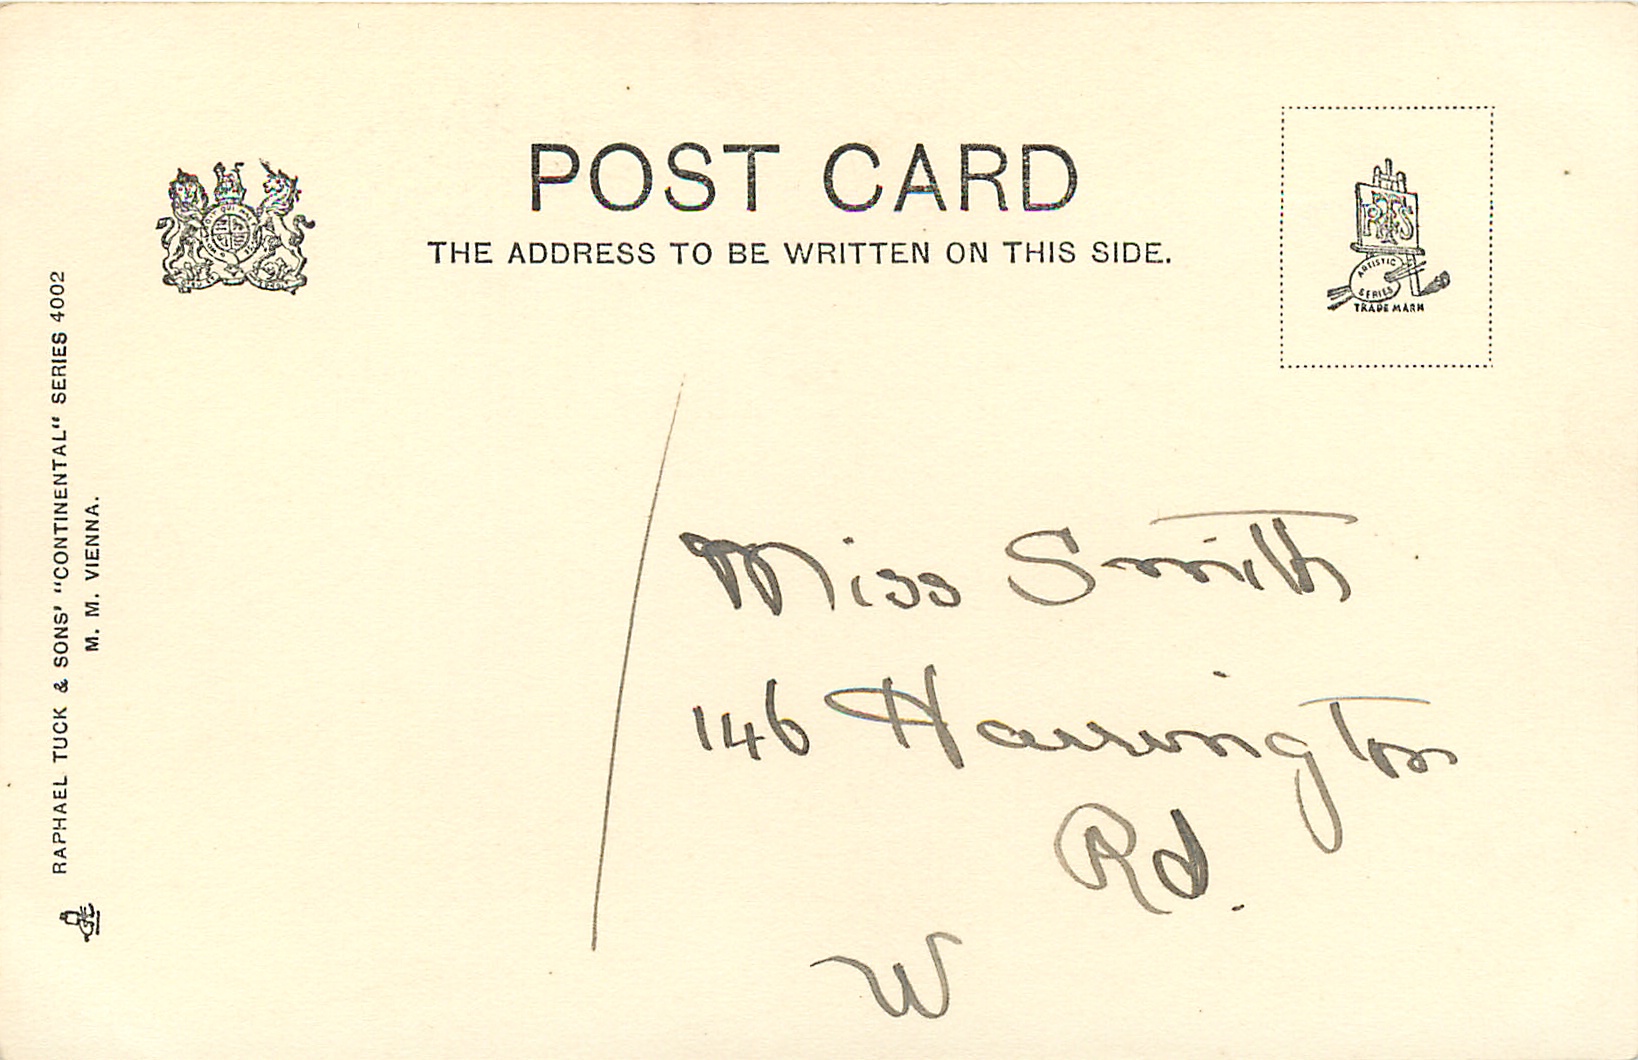 POST CARD
THE ADDRESS TO BE WRITTEN ON THIS SIDE.
RTS
ARTISTIC
SERIES
TRADE MARK
RAPHAEL TUCK & SONS' "CONTINENTAL" SERIES 4002
M. M. VIENNA.
Miss Smith
146 Harrington
Rd.
W